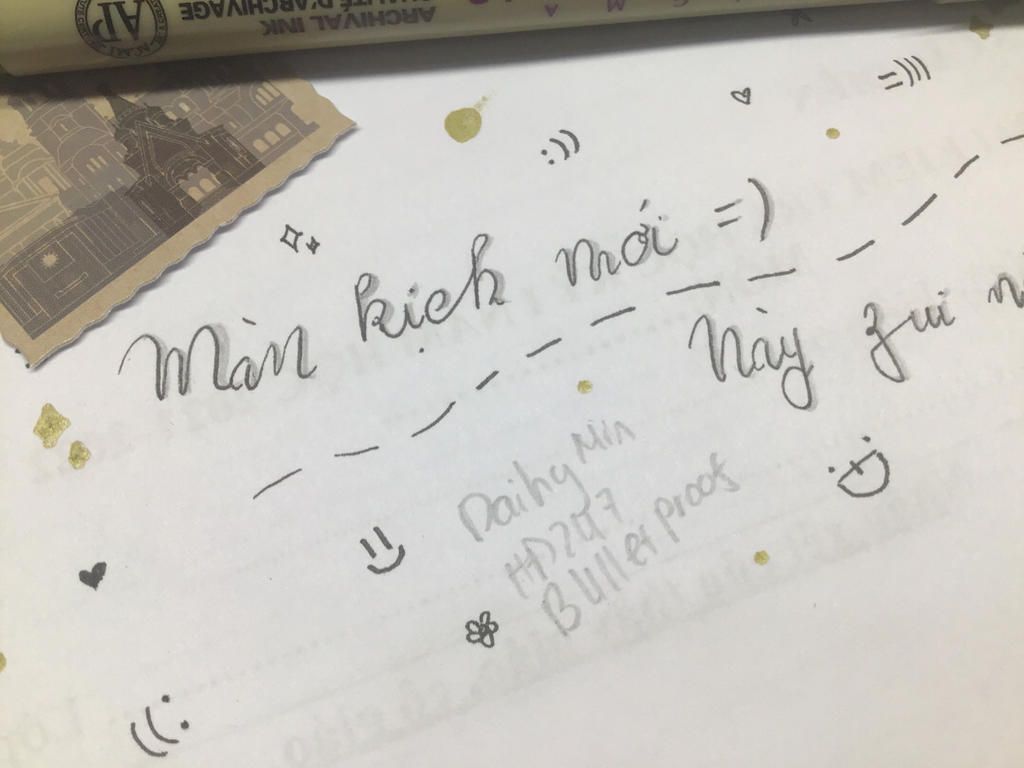 ARCHIVAL INK
QUALITÉ D'ARCHIVAGE
AP
=)))
:))
Màn kịch mới =)
Này zui
Daihy Min
HD2417
Bulletproofs
((: